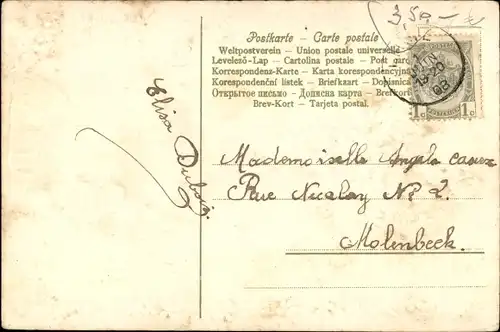 3,50
Postkarte – Carte postale
Weltpostverein – Union postale universelle
Levelező-Lap – Cartolina postale – Post card
Korrespondenz-Karte – Karta korespondencyjna
Korespondenční lístek – Briefkaart – Dopisnica
Открытое письмо – Дописна карта – Brefkort
Brev-Kort – Tarjeta postal.
1c 1c
Elisa Dubois
Mademoiselle Angela
Rue Nicolay No 2.
Molenbeek.